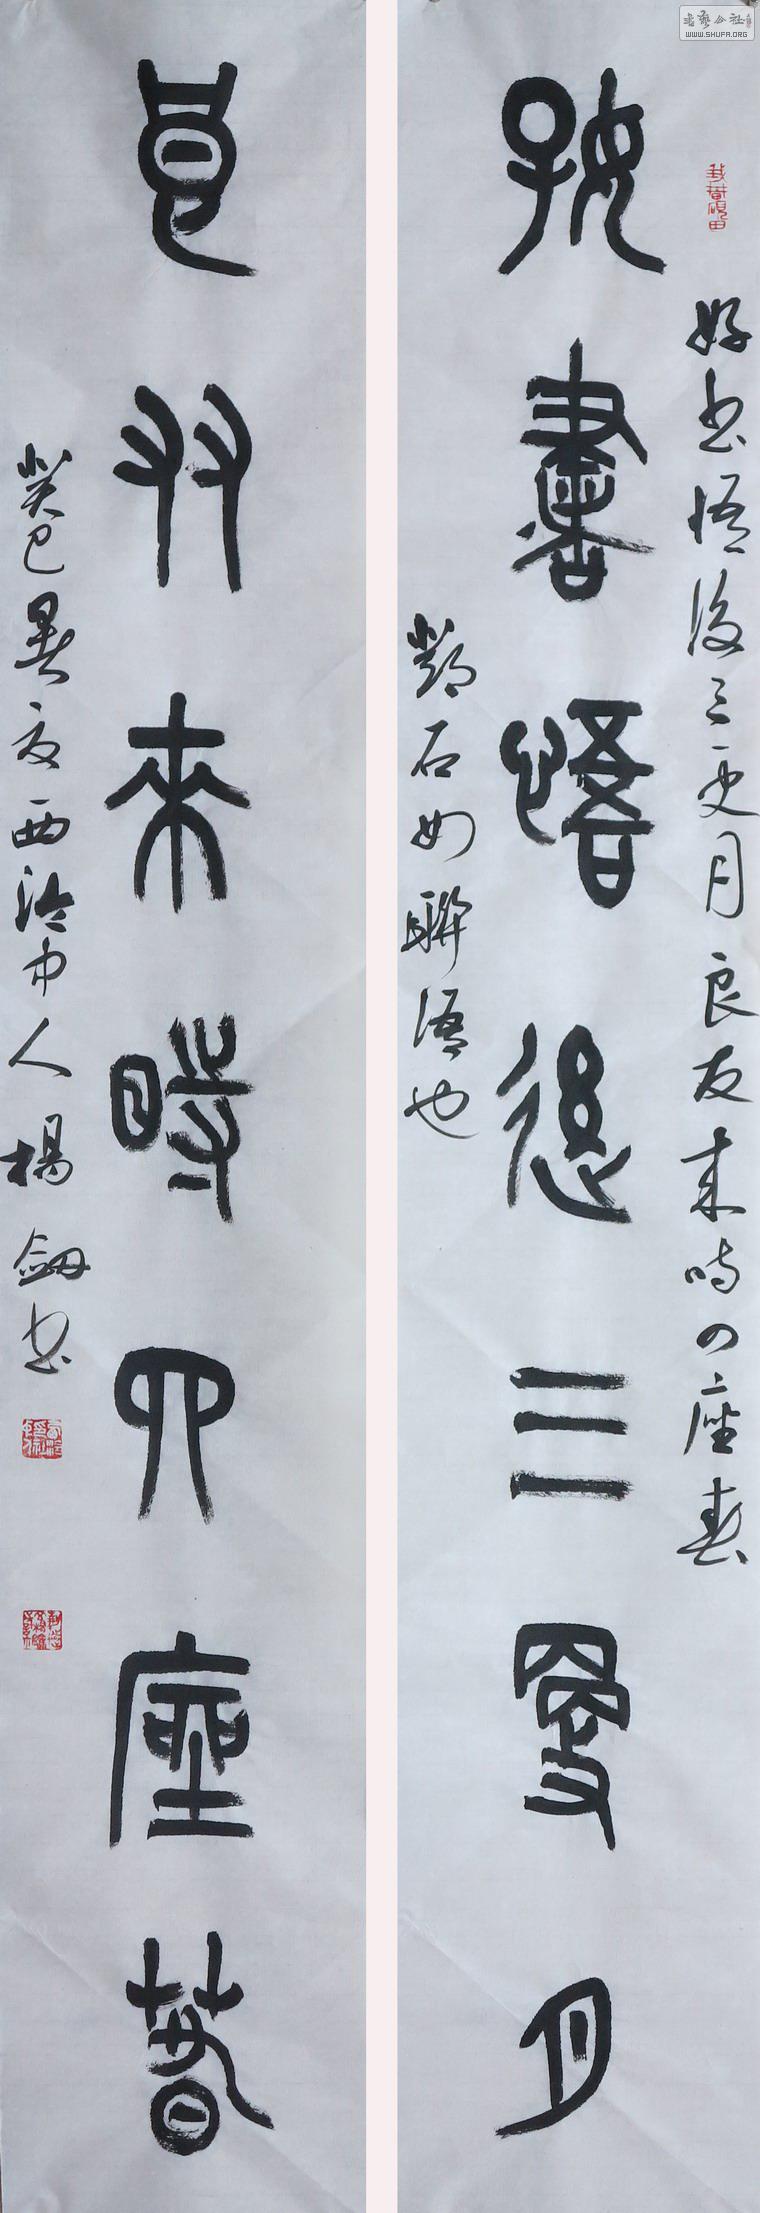 好書悟後三更月
良友來時四座春
好书悟後三更月良友来時四座春
鄧石如聯語也
癸巳暑夜西泠中人楊劍书
WWW.SHUFA.ORG